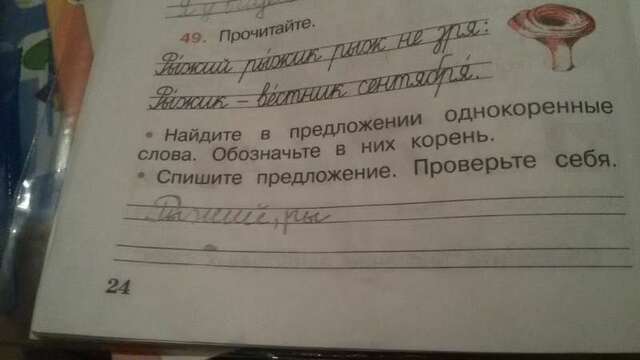 49. Прочитайте.
Рыжий рыжик рыж не зря:
Рыжик – вестник сентября.
• Найдите в предложении однокоренные
слова. Обозначьте в них корень.
• Спишите предложение. Проверьте себя.
24